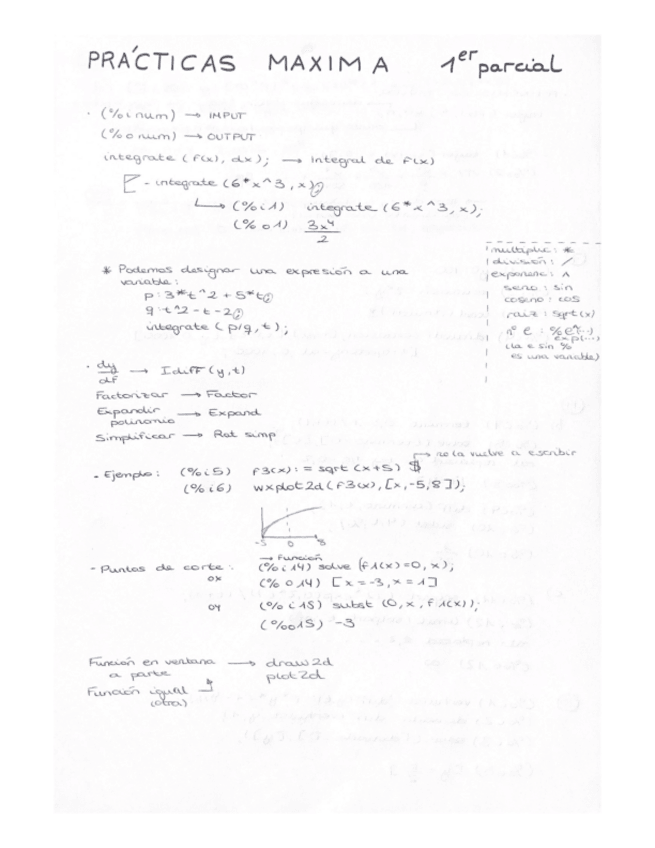 PRÁCTICAS MAXIMA 1er parcial
· (%i num) → IMPUT
(%o num) → OUTPUT
integrate (f(x), dx); → Integral de f(x)
- integrate (6*x^3, x);
(%i1) integrate (6*x^3, x);
(%o1) 3x⁴/2
* Podemos designar una expresión a una
variable:
p: 3*t^2 + 5*t;
q: t^2 - t - 2;
integrate (p/q, t);
multiplic: *
división: /
exponenc: ^
seno: sin
coseno: cos
raiz: sqrt(x)
nº e: %e^(...)
exp(...)
(la e sin %
es una variable)
· dy/df → Idiff (y,t)
Factorizar → Factor
Expandir → Expand
polinomio
Simplificar → Rat simp
→ no la vuelve a escribir
- Ejemplo: (%i5) f3(x): = sqrt (x+5) $
(%i6) wxplot2d (f3(x), [x,-5,8]);
-5 0 8
→ Función
- Puntos de corte: (%i14) solve (f1(x)=0, x);
OX (%o14) [x=-3, x=1]
OY (%i15) subst (0, x, f1(x));
(%o15) -3
Función en ventana → draw2d
a parte plot2d
Función igual
(otra)